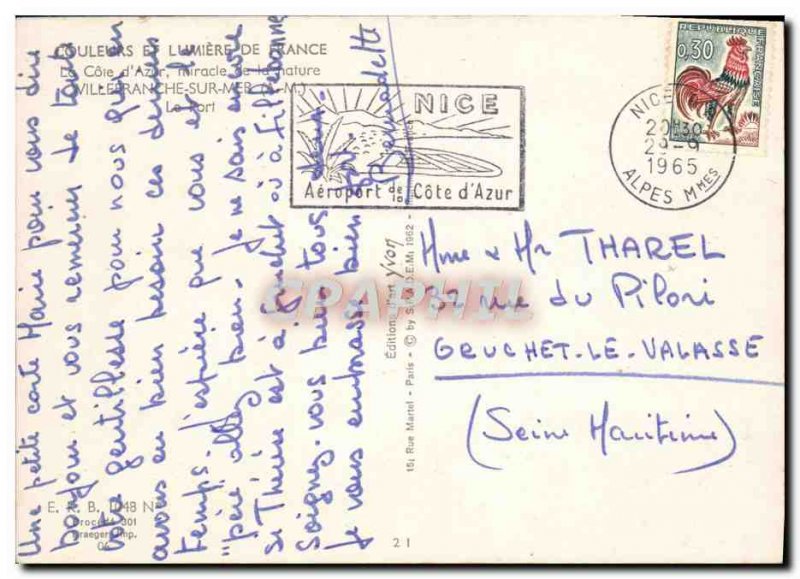 COULEURS ET LUMIÈRE DE FRANCE
La Côte d'Azur, miracle de la nature
VILLEFRANCHE-SUR-MER (A.-M.)
Le Port
Une petite carte Marie pour vous dire
bonjour et vous remercier de toute
votre gentillesse pour nous qui en
avons eu bien besoin ces derniers
temps. J'espère que vous et le
"père" allez bien. Je ne sais encore
si Thérèse est à Gruchet où à
Soignez-vous bien tous deux.
Je vous embrasse bien fort
Bernadette
E. R. B. 1048 N
Procédé 301
Draeger Imp.
21
15, Rue Martel - Paris - © by S.P.A.D.E.M. 1962 -
Éditions d'art yvon
NICE
Aéroport de la Côte d'Azur
REPUBLIQUE FRANÇAISE
0,30
NICE
20H30
29-9
1965
ALPES MMES
Mme & Mr THAREL
32 rue du Pilori
GRUCHET-LE-VALASSE
(Seine Maritime)
CPAPHIL